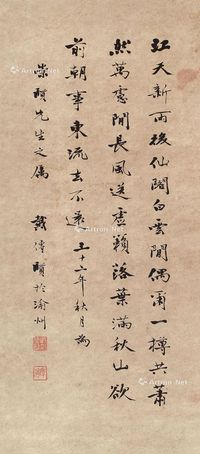 江天新雨後仙閣白雲間偶爾一樽共蕭
然萬慮閒長風送虛籟落葉滿秋山欲
前朝事東流去不還 三十二年秋月為
先生之屬 戴傳賢於渝州